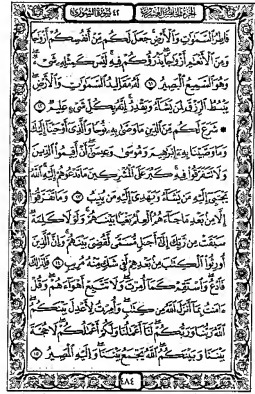 سُورَةُ الشُّورَىٰ ٤٢
فَاطِرُ السَّمَٰوَٰتِ وَالْأَرْضِ جَعَلَ لَكُم مِّنْ أَنفُسِكُمْ أَزْوَٰجًا
وَمِنَ الْأَنْعَٰمِ أَزْوَٰجًا يَذْرَؤُكُمْ فِيهِ لَيْسَ كَمِثْلِهِ شَىْءٌ
وَهُوَ السَّمِيعُ الْبَصِيرُ ١١ لَهُ مَقَالِيدُ السَّمَٰوَٰتِ وَالْأَرْضِ
يَبْسُطُ الرِّزْقَ لِمَن يَشَاءُ وَيَقْدِرُ إِنَّهُ بِكُلِّ شَىْءٍ عَلِيمٌ ١٢
۞ شَرَعَ لَكُم مِّنَ الدِّينِ مَا وَصَّىٰ بِهِ نُوحًا وَالَّذِى أَوْحَيْنَا إِلَيْكَ
وَمَا وَصَّيْنَا بِهِ إِبْرَٰهِيمَ وَمُوسَىٰ وَعِيسَىٰ أَنْ أَقِيمُوا الدِّينَ
وَلَا تَتَفَرَّقُوا فِيهِ كَبُرَ عَلَى الْمُشْرِكِينَ مَا تَدْعُوهُمْ إِلَيْهِ اللَّهُ
يَجْتَبِى إِلَيْهِ مَن يَشَاءُ وَيَهْدِى إِلَيْهِ مَن يُنِيبُ ١٣ وَمَا تَفَرَّقُوا
إِلَّا مِن بَعْدِ مَا جَاءَهُمُ الْعِلْمُ بَغْيًا بَيْنَهُمْ وَلَوْلَا كَلِمَةٌ
سَبَقَتْ مِن رَّبِّكَ إِلَىٰ أَجَلٍ مُّسَمًّى لَّقُضِىَ بَيْنَهُمْ وَإِنَّ الَّذِينَ
أُورِثُوا الْكِتَٰبَ مِن بَعْدِهِمْ لَفِى شَكٍّ مِّنْهُ مُرِيبٍ ١٤ فَلِذَٰلِكَ
فَادْعُ وَاسْتَقِمْ كَمَا أُمِرْتَ وَلَا تَتَّبِعْ أَهْوَاءَهُمْ وَقُلْ
ءَامَنتُ بِمَا أَنزَلَ اللَّهُ مِن كِتَٰبٍ وَأُمِرْتُ لِأَعْدِلَ بَيْنَكُمُ
اللَّهُ رَبُّنَا وَرَبُّكُمْ لَنَا أَعْمَٰلُنَا وَلَكُمْ أَعْمَٰلُكُمْ لَا حُجَّةَ
بَيْنَنَا وَبَيْنَكُمُ اللَّهُ يَجْمَعُ بَيْنَنَا وَإِلَيْهِ الْمَصِيرُ ١٥
٤٨٤